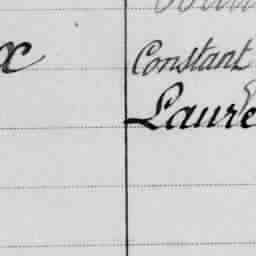 x Constant
Laure